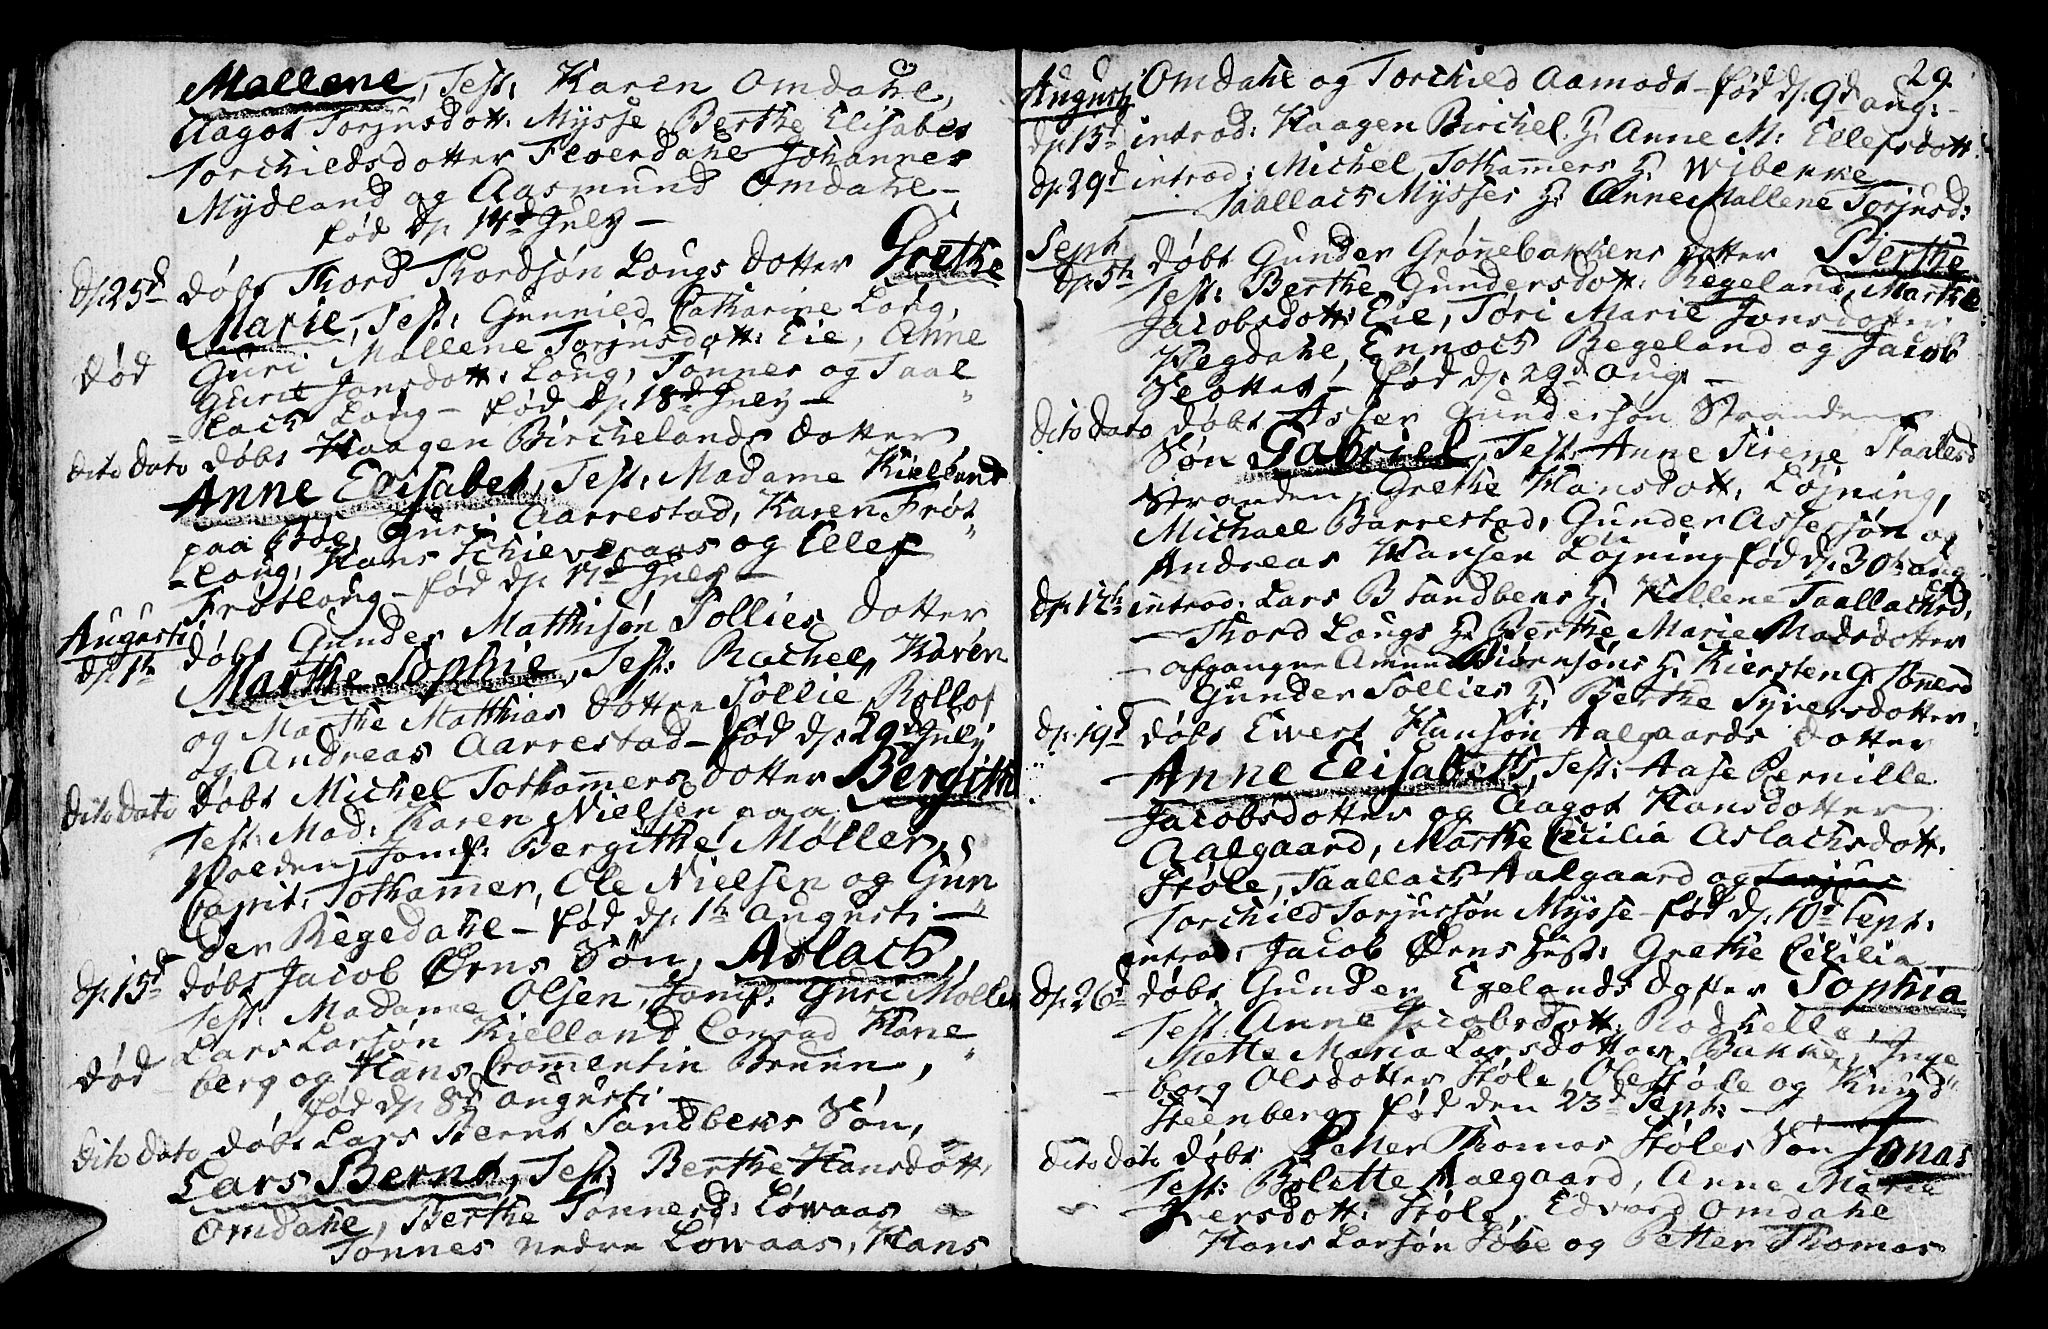 Mallene, Test: Karen Omdahl,
Aagot Torjusdott: Mysse, Berthe Elisabet
Torchieldsdotter Fleverdahl Johannes
Mydland og Aasmund Omdahl –
fød d. 14d July –
d. 25d døbt Thord Thordsøn Lougs dotter Grethe
Marie, Test: Gunnild Catharine Loug,
død Guri Mallene Torjusdott: Eie, Anne
Gurie Jonsdott: Loug, Tønnes og Taal
lach Loug – fød d. 18d July –
dito dato døbt Haagen Birchelands dotter
Anne Elisabet, Test: Madame Kielland
paa Eide, Guri Aarrestad, Karen Frøt
loug, Hans og Ellef
Frøtloug – fød d. 17d July –
Augusti døbt Gunder Mathisøn Sollies dotter
d. 1te Marthe Sophie, Test: Rachel, Karen
og Marthe Matthias dotter Sollie Rollof
og Andreas Aarrestad – fød d. 29d July
dito dato døbt Michel Tothammers dotter Bergithe
Test: Mad: Karen Nielsen paa
Volden, Jomf: Bergithe Møller,
Capit: Tothammer, Ole Nielsen og Gun
der Regedahl – fød d. 1te Augusti –
d. 15d døbt Jacob Ørns Søn, Aslach,
Test: Madame Olsen, Jomf: Guri Møller
Lars Larsøn Kielland Conrad Hane
død berg og Hans Cromentin Bruun,
fød d. 8d augusti –
dito dato døbt Lars Bernt Sandbeks Søn,
Lars Bernt, Test: Berthe Hansdott:
Omdahl, Berthe Tønnesd: Løwaas
Tønnes nedre Løwaas, Hans
29
Augusti Omdahl og Torchild Aamodt – fød d. 9d aug: –
d. 15d introd: Haagen Birchel. H: Anne M: Ellefsdott:
d. 29d introd: Michel Tothammers H: Wibecke
– Taallach Mysses H: Anne Mallene Torjusd:
Sept døbt Gunder Grønebakkens dotter Berthe
d. 5te Test: Berthe Gundersdott: Regeland, Marthe
Jacobsdott: Eie, Tøri Marie Jonsdotter
Regdahl, Ennoch Regeland og Jacob
Slottet – fød d. 29d aug: –
dito dato døbt Asser Gundersøn Strandens
Søn Gabriel, Test: Anne Sirene Staallesd
Stranden, Grethe Hansdott: Løjning,
Michael Barrestad, Gunder Assersøn og
Andreas Hansen Løjning fød d. 30te aug
d. 12te introd: Lars B Sandbeks H: Hellene Taallachsd.
– Thord Lougs H: Berthe Marie Madsdotter
– afgangne Amund Biørnsøns H: Kiersten G. Tønnesd
– Gunder Sollies H: Berthe Syversdotter
d. 19d døbt Ewert Hansøn Aalgaards dotter
Anne Elisabeth, Test: Aase Pernille
Jacobsdotter og Aagot Hansdotter
Aalgaard, Marthe Cecilia Aslachsdott:
Støle, Taallach Aalgaard og Torjus
Torchild Torjussøn Mysse – fød d. 10d Sept:
introd: Jacob Ørns Hust: Grethe Cecilia
d. 26d døbt Gunder Egelands dotter Sophia
Test: Anne Jacobsdott:
Mette Maria Larsdotter Bakke, Inge
borg Olsdotter Støle, Ole Støle og Knud
Steenberg fød den 23d Sept: –
dito dato døbt Petter Thomas Støles Søn Jonas
Test: Bolette Aalgaard, Anne Maria
Iversdott: Støle, Edvard Omdahl
Hans Larsøn og Petter Thomas